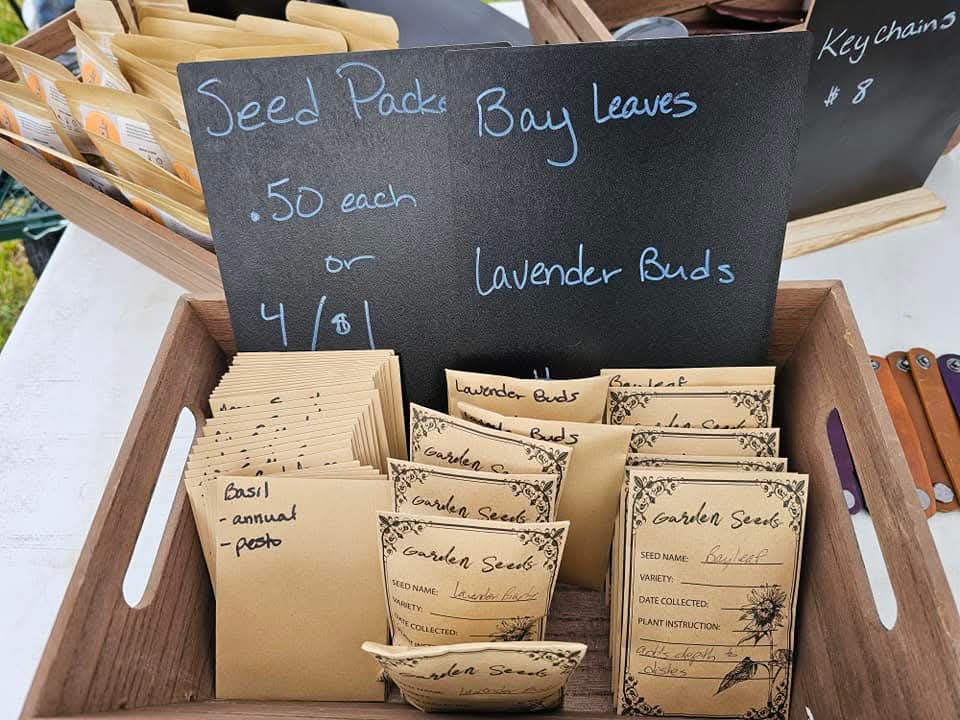 Key chains
$ 8
Seed Packs
.50 each
or
4/$1
Bay Leaves
Lavender Buds
Lavender Buds
Buds
Bay leaf
Basil
- annual
- pesto
Garden Seeds
Garden Seeds
Garden Seeds
SEED NAME: Lavender
VARIETY:
DATE COLLECTED:
Garden Seeds
Lavender
Garden Seeds
Garden Seeds
SEED NAME: Bayleaf
VARIETY:
DATE COLLECTED:
PLANT INSTRUCTION:
adds depth to
dishes